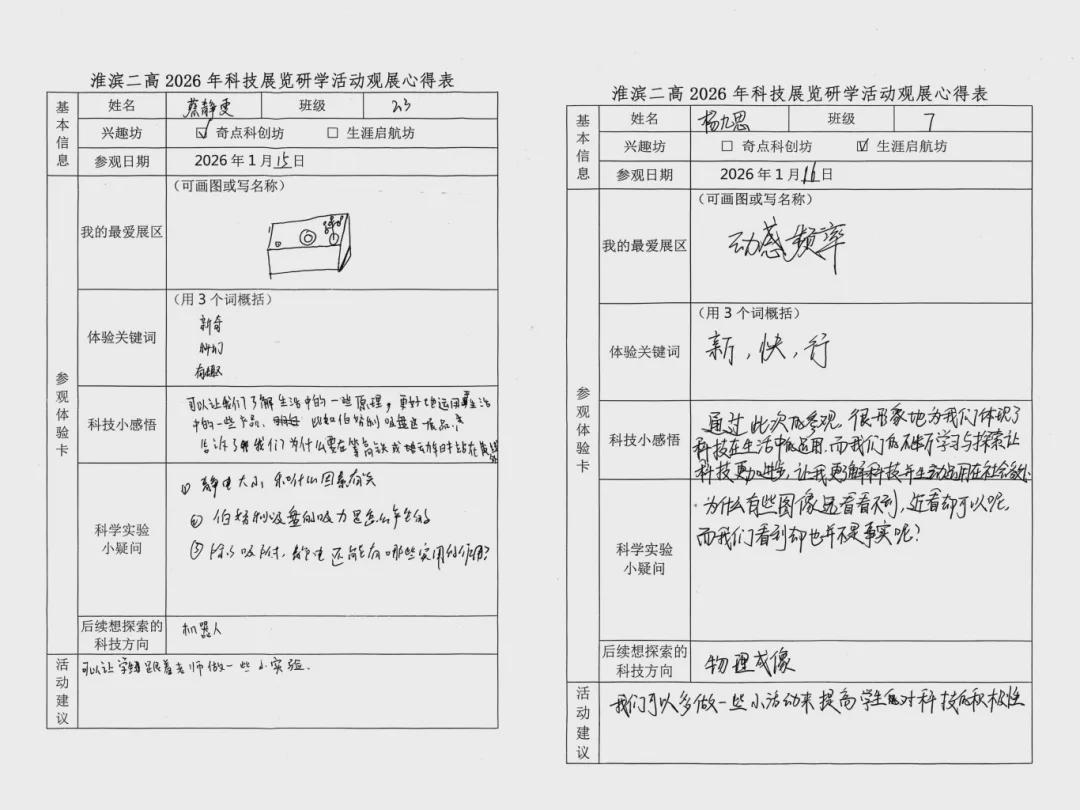 淮滨二高 2026 年科技展览研学活动观展心得表
基本信息
姓名 蔡静雯 班级 23
兴趣坊 ☑ 奇点科创坊 ☐ 生涯启航坊
参观日期 2026 年 1 月 15 日
参观体验卡
我的最爱展区
(可画图或写名称)
体验关键词
(用 3 个词概括)
新奇
有趣
科技小感悟
可以让我们了解生活中的一些原理,更好地运用生活
中的一些产品
告诉了我们为什么要在等高铁或地铁时站在黄线
科学实验
小疑问
① 静电大小和什么因素有关
② 伯努利吸盘的吸力是怎么产生的
③ 除了吸附,静电还能有哪些实用的作用?
后续想探索的
科技方向
机器人
活动建议
可以让学生跟着老师做一些小实验.
淮滨二高 2026 年科技展览研学活动观展心得表
基本信息
姓名 杨九思 班级 7
兴趣坊 ☐ 奇点科创坊 ☑ 生涯启航坊
参观日期 2026 年 1 月 16 日
参观体验卡
我的最爱展区
(可画图或写名称)
动感频率
体验关键词
(用 3 个词概括)
新,快,行
科技小感悟
通过此次的参观,很形象地为我们体现了
科技在生活中的运用.而我们的不断学习与探索让
科技更加进步,让我更了解科技并生动运用在社会
科学实验
小疑问
为什么有些图像远看看不到,近看却可以呢,
而我们看到却也并不是事实呢?
后续想探索的
科技方向
物理成像
活动建议
我们可以多做一些小活动来提高学生对科技的积极性